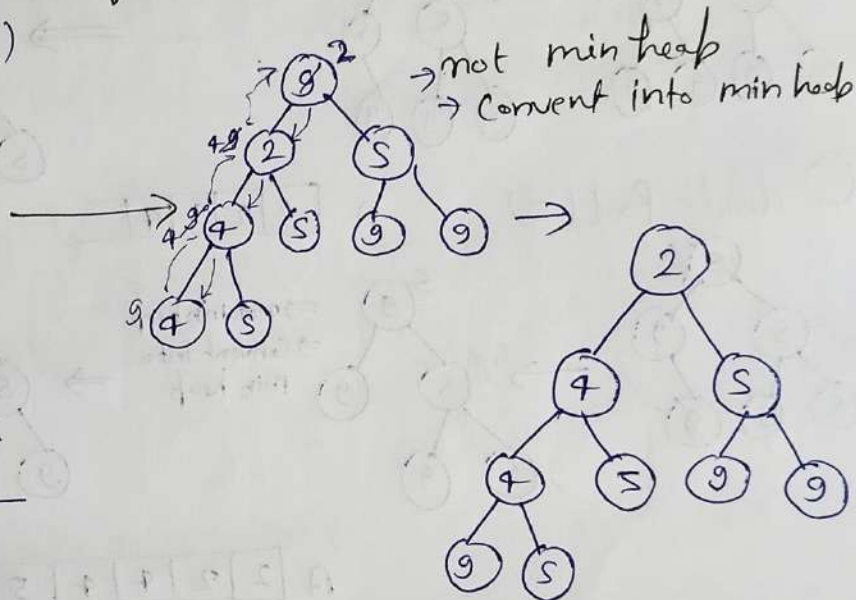 )
9 2
→ not min heap
→ convent into min heap
4 9 2 5
4 9 4 5 9 9 →
9 4 5
2
4 5
4 5 9 9
9 5